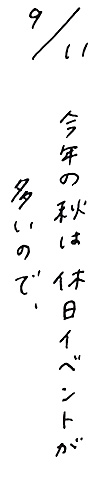 9/11
今年の秋は休日イベントが
多いので、